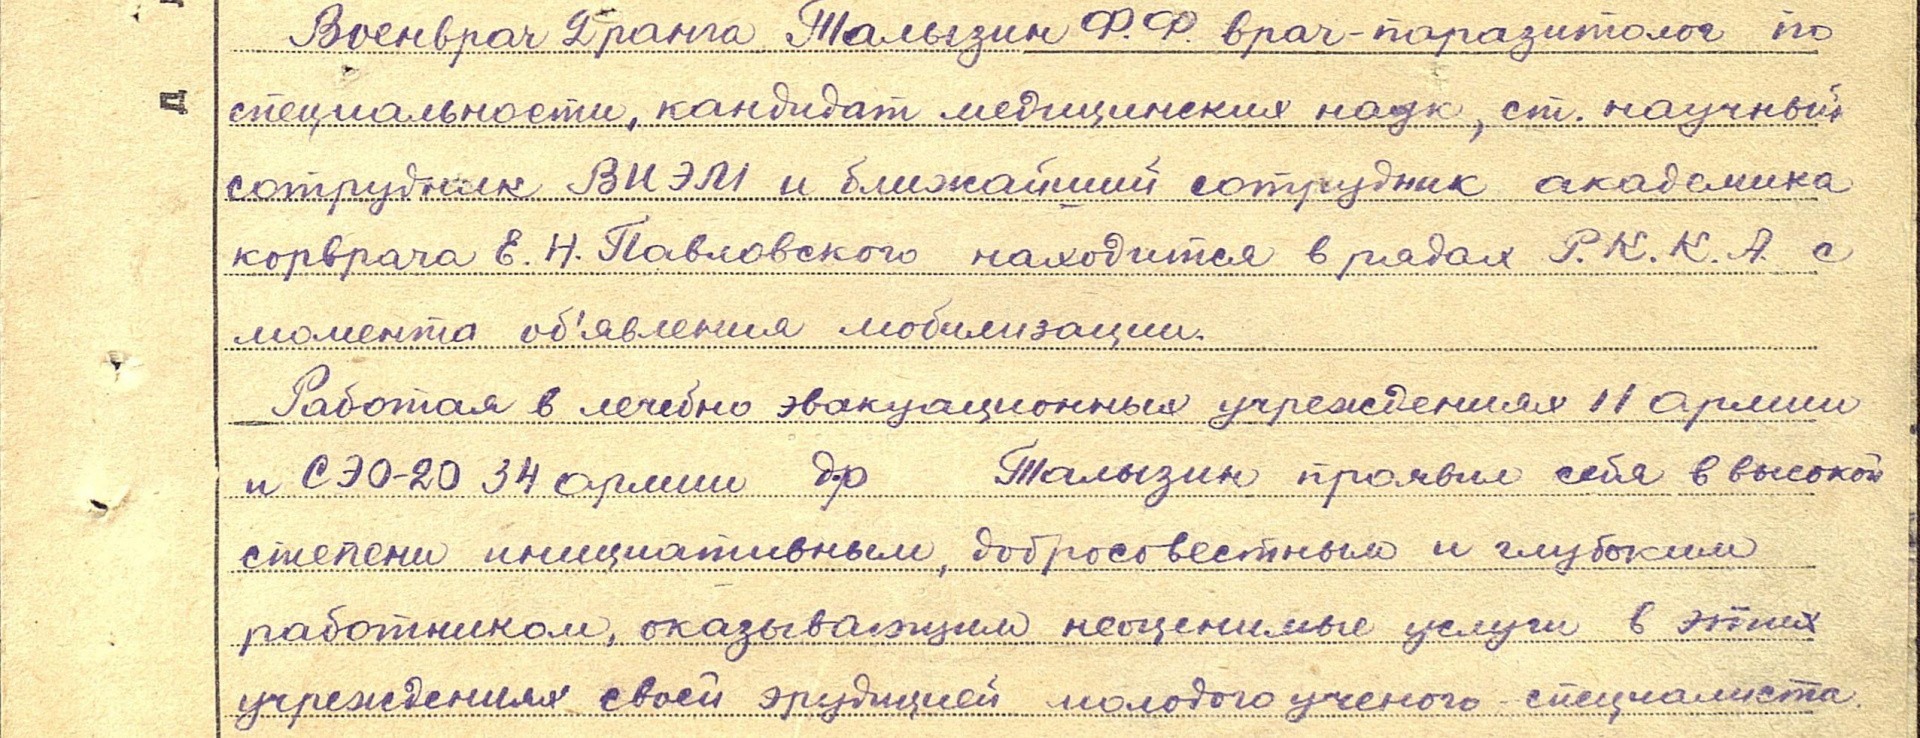 Военврач 2 ранга Талызин Ф.Ф. врач-паразитолог по
специальности, кандидат медицинских наук, ст. научный
сотрудник ВИЭМ и ближайший сотрудник академика
корврача Е. Н. Павловского находится в рядах Р.К.К.А. с
момента об'явления мобилизации.
Работая в лечебно эвакуационных учреждениях 11 армии
и СЭО-20 34 армии д-р Талызин проявил себя в высокой
степени инициативным, добросовестным и глубоким
работником, оказывающим неоценимые услуги в этих
учреждениях своей эрудицией молодого ученого-специалиста.
Д